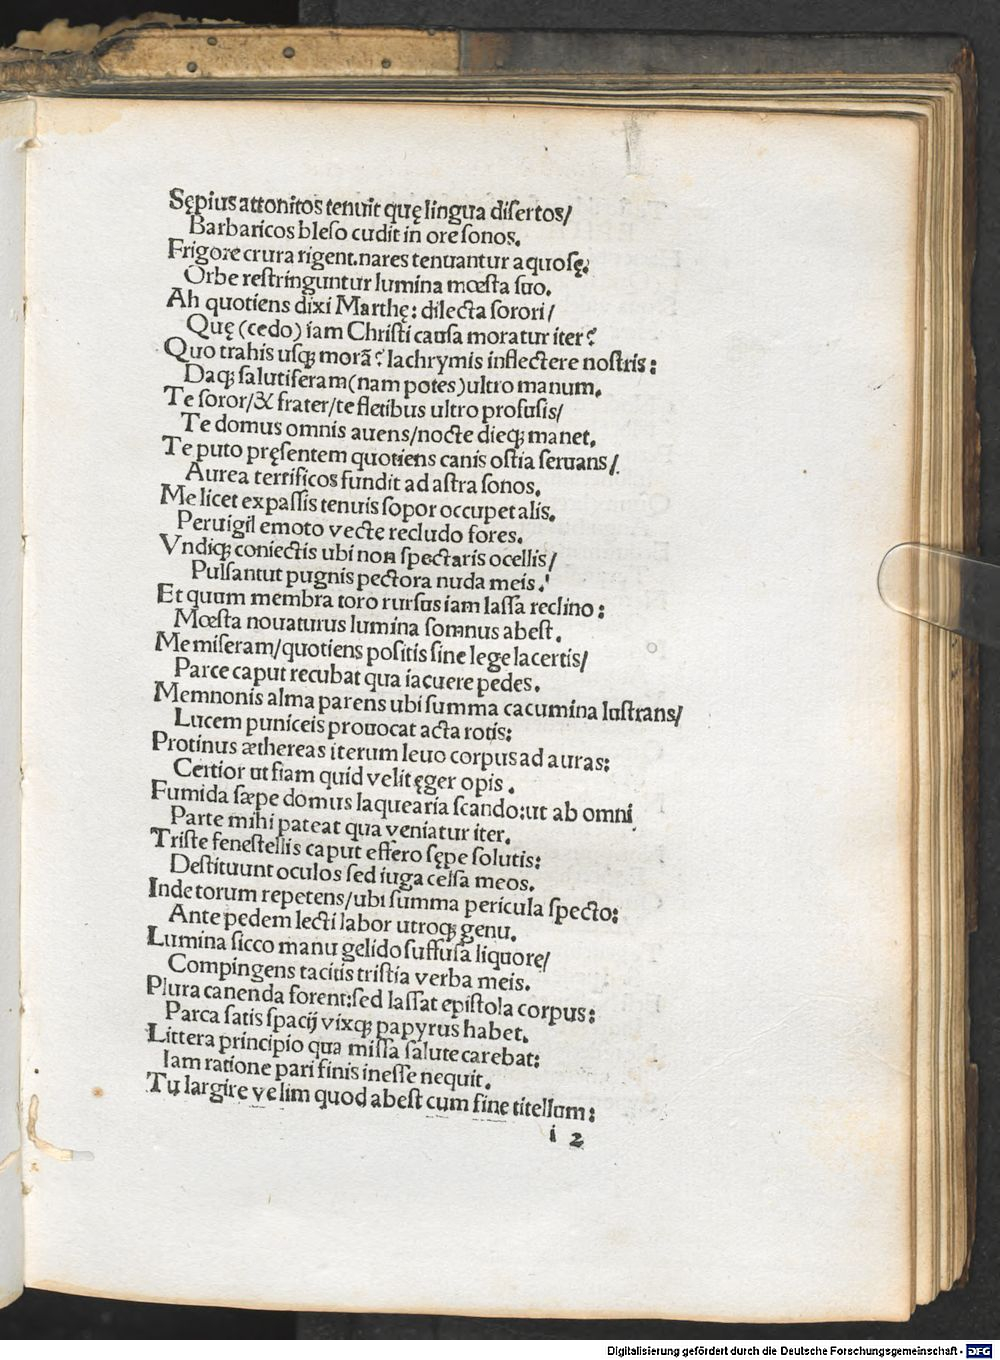 Sępius attonitos tenuit quę lingua diſertos/
Barbaricos bleſo cudit in ore ſonos.
Frigore crura rigent.nares tenuantur aquosę.
Orbe reſtringuntur lumina mœſta ſuo.
Ah quotiens dixi Marthę: dilecta ſorori/
Quę (cedo) iam Chriſti cauſa moratur iter?
Quo trahis uſqꝫ morã? lachrymis inflectere noſtris:
Daqꝫ ſalutiferam(nam potes)ultro manum.
Te ſoror/& frater/te fletibus ultro profuſis/
Te domus omnis auens/nocte dieqꝫ manet.
Te puto pręſentem quotiens canis oſtia ſeruans/
Aurea terrificos fundit ad aſtra ſonos.
Me licet expaſſis tenuis ſopor occupet alis.
Peruigil emoto vecte recludo fores.
Vndiqꝫ coniectis ubi non ſpectaris ocellis/
Pulſantut pugnis pectora nuda meis.
Et quum membra toro rurſus iam laſſa reclino:
Mœſta nouaturus lumina ſomnus abeſt.
Me miſeram/quotiens poſitis ſine lege lacertis/
Parce caput recubat qua iacuere pedes.
Memnonis alma parens ubi ſumma cacumina luſtrans/
Lucem puniceis prouocat acta rotis:
Protinus æthereas iterum leuo corpus ad auras:
Certior ut fiam quid velit ęger opis.
Fumida ſæpe domus laquearia ſcando:ut ab omni
Parte mihi pateat qua veniatur iter.
Triſte feneſtellis caput effero ſępe ſolutis:
Deſtituunt oculos ſed iuga celſa meos.
Inde torum repetens/ubi ſumma pericula ſpecto:
Ante pedem lecti labor utroqꝫ genu.
Lumina ſicco manu gelido ſuffuſa liquore/
Compingens tacitis triſtia verba meis.
Plura canenda forent:ſed laſſat epiſtola corpus:
Parca ſatis ſpacij vixqꝫ papyrus habet.
Littera principio qua miſſa ſalute carebat:
Iam ratione pari finis ineſſe nequit.
Tu largire velim quod abeſt cum fine titellum:
i 2
Digitalisierung gefördert durch die Deutsche Forschungsgemeinschaft - DFG